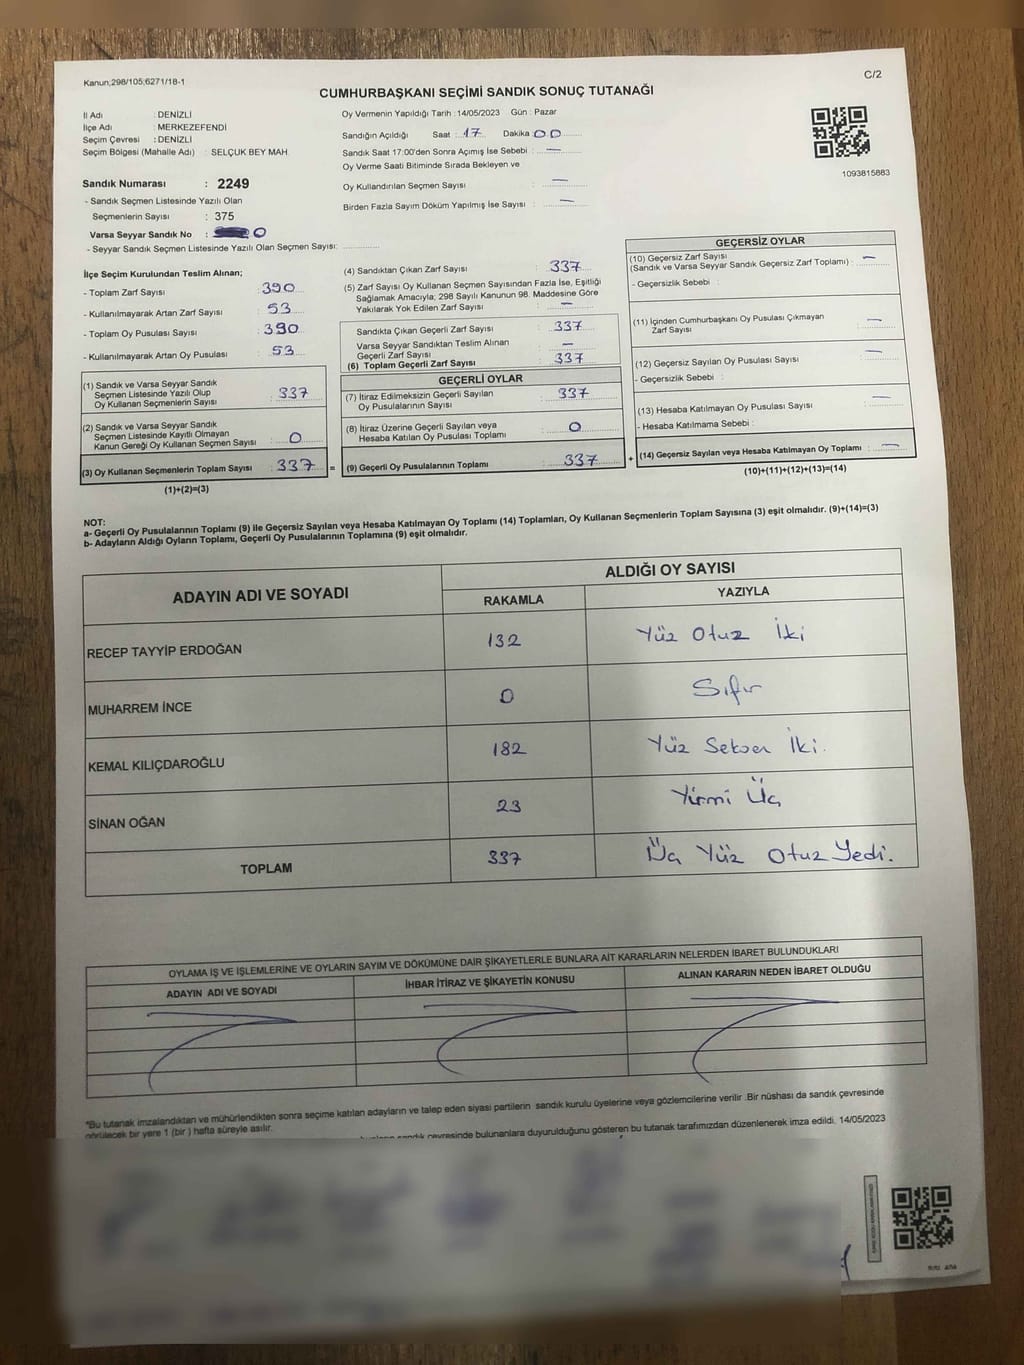 Kanun;298/105;6271/18-1
C/2
CUMHURBAŞKANI SEÇİMİ SANDIK SONUÇ TUTANAĞI
İl Adı : DENİZLİ
İlçe Adı : MERKEZEFENDİ
Seçim Çevresi : DENİZLİ
Seçim Bölgesi (Mahalle Adı) : SELÇUK BEY MAH.
Sandık Numarası : 2249
- Sandık Seçmen Listesinde Yazılı Olan
Seçmenlerin Sayısı : 375
Varsa Seyyar Sandık No : 0
- Seyyar Sandık Seçmen Listesinde Yazılı Olan Seçmen Sayısı:
Oy Vermenin Yapıldığı Tarih : 14/05/2023 Gün : Pazar
Sandığın Açıldığı Saat : 17 Dakika : 00
Sandık Saat 17:00'den Sonra Açımış İse Sebebi : —
Oy Verme Saati Bitiminde Sırada Bekleyen ve
Oy Kullandırılan Seçmen Sayısı : —
Birden Fazla Sayım Döküm Yapılmış İse Sayısı : —
1093815883
İlçe Seçim Kurulundan Teslim Alınan;
- Toplam Zarf Sayısı : 390
- Kullanılmayarak Artan Zarf Sayısı : 53
- Toplam Oy Pusulası Sayısı : 390
- Kullanılmayarak Artan Oy Pusulası : 53
(1) Sandık ve Varsa Seyyar Sandık
Seçmen Listesinde Yazılı Olup
Oy Kullanan Seçmenlerin Sayısı : 337
(2) Sandık ve Varsa Seyyar Sandık
Seçmen Listesinde Kayıtlı Olmayan
Kanun Gereği Oy Kullanan Seçmen Sayısı : 0
(3) Oy Kullanan Seçmenlerin Toplam Sayısı : 337 =
(1)+(2)=(3)
(4) Sandıktan Çıkan Zarf Sayısı : 337
(5) Zarf Sayısı Oy Kullanan Seçmen Sayısından Fazla İse, Eşitliği
Sağlamak Amacıyla; 298 Sayılı Kanunun 98. Maddesine Göre
Yakılarak Yok Edilen Zarf Sayısı : —
Sandıkta Çıkan Geçerli Zarf Sayısı : 337
Varsa Seyyar Sandıktan Teslim Alınan
Geçerli Zarf Sayısı : —
(6) Toplam Geçerli Zarf Sayısı : 337
GEÇERLİ OYLAR
(7) İtiraz Edilmeksizin Geçerli Sayılan
Oy Pusulalarının Sayısı : 337
(8) İtiraz Üzerine Geçerli Sayılan veya
Hesaba Katılan Oy Pusulası Toplamı : 0
(9) Geçerli Oy Pusulalarının Toplamı : 337 +
GEÇERSİZ OYLAR
(10) Geçersiz Zarf Sayısı
(Sandık ve Varsa Seyyar Sandık Geçersiz Zarf Toplamı) : —
- Geçersizlik Sebebi :
(11) İçinden Cumhurbaşkanı Oy Pusulası Çıkmayan
Zarf Sayısı : —
(12) Geçersiz Sayılan Oy Pusulası Sayısı : —
- Geçersizlik Sebebi :
(13) Hesaba Katılmayan Oy Pusulası Sayısı : —
- Hesaba Katılmama Sebebi :
(14) Geçersiz Sayılan veya Hesaba Katılmayan Oy Toplamı : —
(10)+(11)+(12)+(13)=(14)
NOT:
a- Geçerli Oy Pusulalarının Toplamı (9) ile Geçersiz Sayılan veya Hesaba Katılmayan Oy Toplamı (14) Toplamları, Oy Kullanan Seçmenlerin Toplam Sayısına (3) eşit olmalıdır. (9)+(14)=(3)
b- Adayların Aldığı Oyların Toplamı, Geçerli Oy Pusulalarının Toplamına (9) eşit olmalıdır.
ADAYIN ADI VE SOYADI
ALDIĞI OY SAYISI
RAKAMLA YAZIYLA
RECEP TAYYİP ERDOĞAN 132 Yüz Otuz İki
MUHARREM İNCE 0 Sıfır
KEMAL KILIÇDAROĞLU 182 Yüz Seksen İki.
SİNAN OĞAN 23 Yirmi Üç
TOPLAM 337 Üç Yüz Otuz Yedi.
OYLAMA İŞ VE İŞLEMLERİNE VE OYLARIN SAYIM VE DÖKÜMÜNE DAİR ŞİKAYETLERLE BUNLARA AİT KARARLARIN NELERDEN İBARET BULUNDUKLARI
ADAYIN ADI VE SOYADI İHBAR İTİRAZ VE ŞİKAYETİN KONUSU ALINAN KARARIN NEDEN İBARET OLDUĞU
*Bu tutanak imzalandıktan ve mühürlendikten sonra seçime katılan adayların ve talep eden siyasi partilerin sandık kurulu üyelerine veya gözlemcilerine verilir .Bir nüshası da sandık çevresinde
görülecek bir yere 1 (bir ) hafta süreyle asılır.
sandık çevresinde bulunanlara duyurulduğunu gösteren bu tutanak tarafımızdan düzenlenerek imza edildi. 14/05/2023